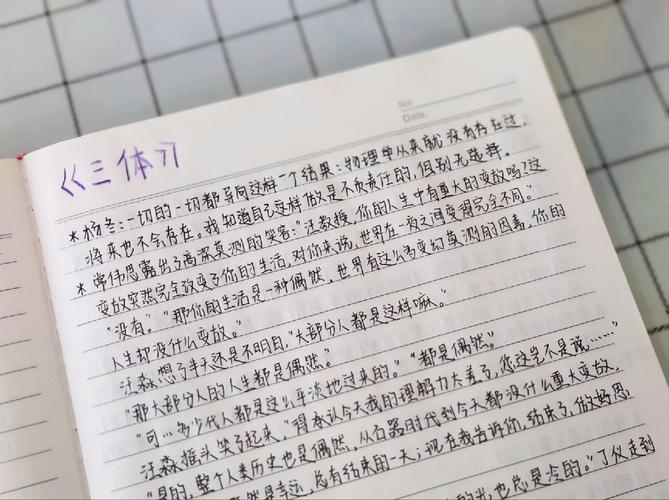 No
Date.
《三体》
*杨冬:一切的一切都导向这样一个结果:物理学从来就没有存在过,
将来也不会存在。我知道自己这样做是不负责任的,但别无选择。
*常伟思露出了高深莫测的笑容:"汪教授,你的人生中有重大的变故吗?这
变故突然完全改变了你的生活,对你来说,世界在一夜之间变得完全不同。"
"没有。""那你的生活是一种偶然,世界有这么多变幻莫测的因素,你的
人生却没什么变故。"
汪淼想了半天还是不明白,"大部分人都是这样嘛。"
"那大部分人的人生都是偶然。"
"可…多少代人都是这么平淡地过来的。""都是偶然。"
汪淼摇头笑了起来,"得承认今天我的理解力太差了,您这岂不是说……"
"是的,整个人类历史也是偶然,从石器时代到今天都没什么重大变故,
然是幸运,总有结束的一天;现在我告诉你,结束了,做好思
的光,也总是冷的。"丁仪走到